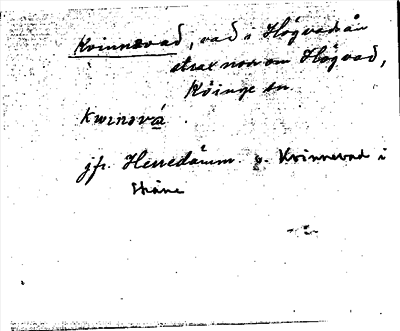 Kvinnevad, vad i Högvadsån
strax norr om Högvad,
Köinge sn
kwinová
jfr. Herredömm. o. Kvinnevad i
Skåne